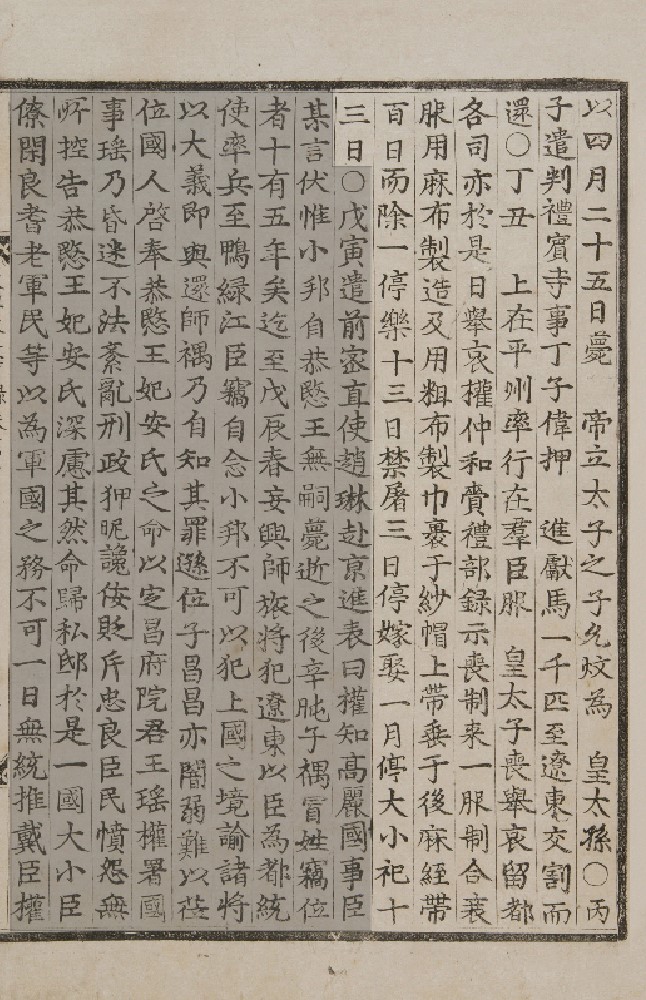 以四月二十五日薨　帝立太子之子允炆為　皇太孫○丙
子遣判禮賓寺事丁子偉押　進獻馬一千匹至遼東交割而
還○丁丑　上在平州率行在羣臣服　皇太子喪舉哀留都
各司亦於是日舉哀權仲和賫禮部錄示喪制來一服制合衰
服用麻布製造及用粗布製巾裹于紗帽上帶垂于後麻絰帶
百日而除一停樂十三日禁屠三日停嫁娶一月停大小祀十
三日○戊寅遣前密直使趙琳赴京進表曰權知高麗國事臣
某言伏惟小邦自恭愍王無嗣薨逝之後辛旽子禑冒姓竊位
者十有五年矣迄至戊辰春妄興師旅將犯遼東以臣為都統
使率兵至鴨綠江臣竊自念小邦不可以犯上國之境諭諸將
以大義即與還師禑乃自知其罪遜位子昌昌亦闇弱難以莅
位國人啓奉恭愍王妃安氏之命以定昌府院君王瑤權署國
事瑤乃昏迷不法紊亂刑政狎昵讒佞貶斥忠良臣民憤怨無
所控告恭愍王妃安氏深慮其然命歸私邸於是一國大小臣
僚閑良耆老軍民等以為軍國之務不可一日無統推戴臣權